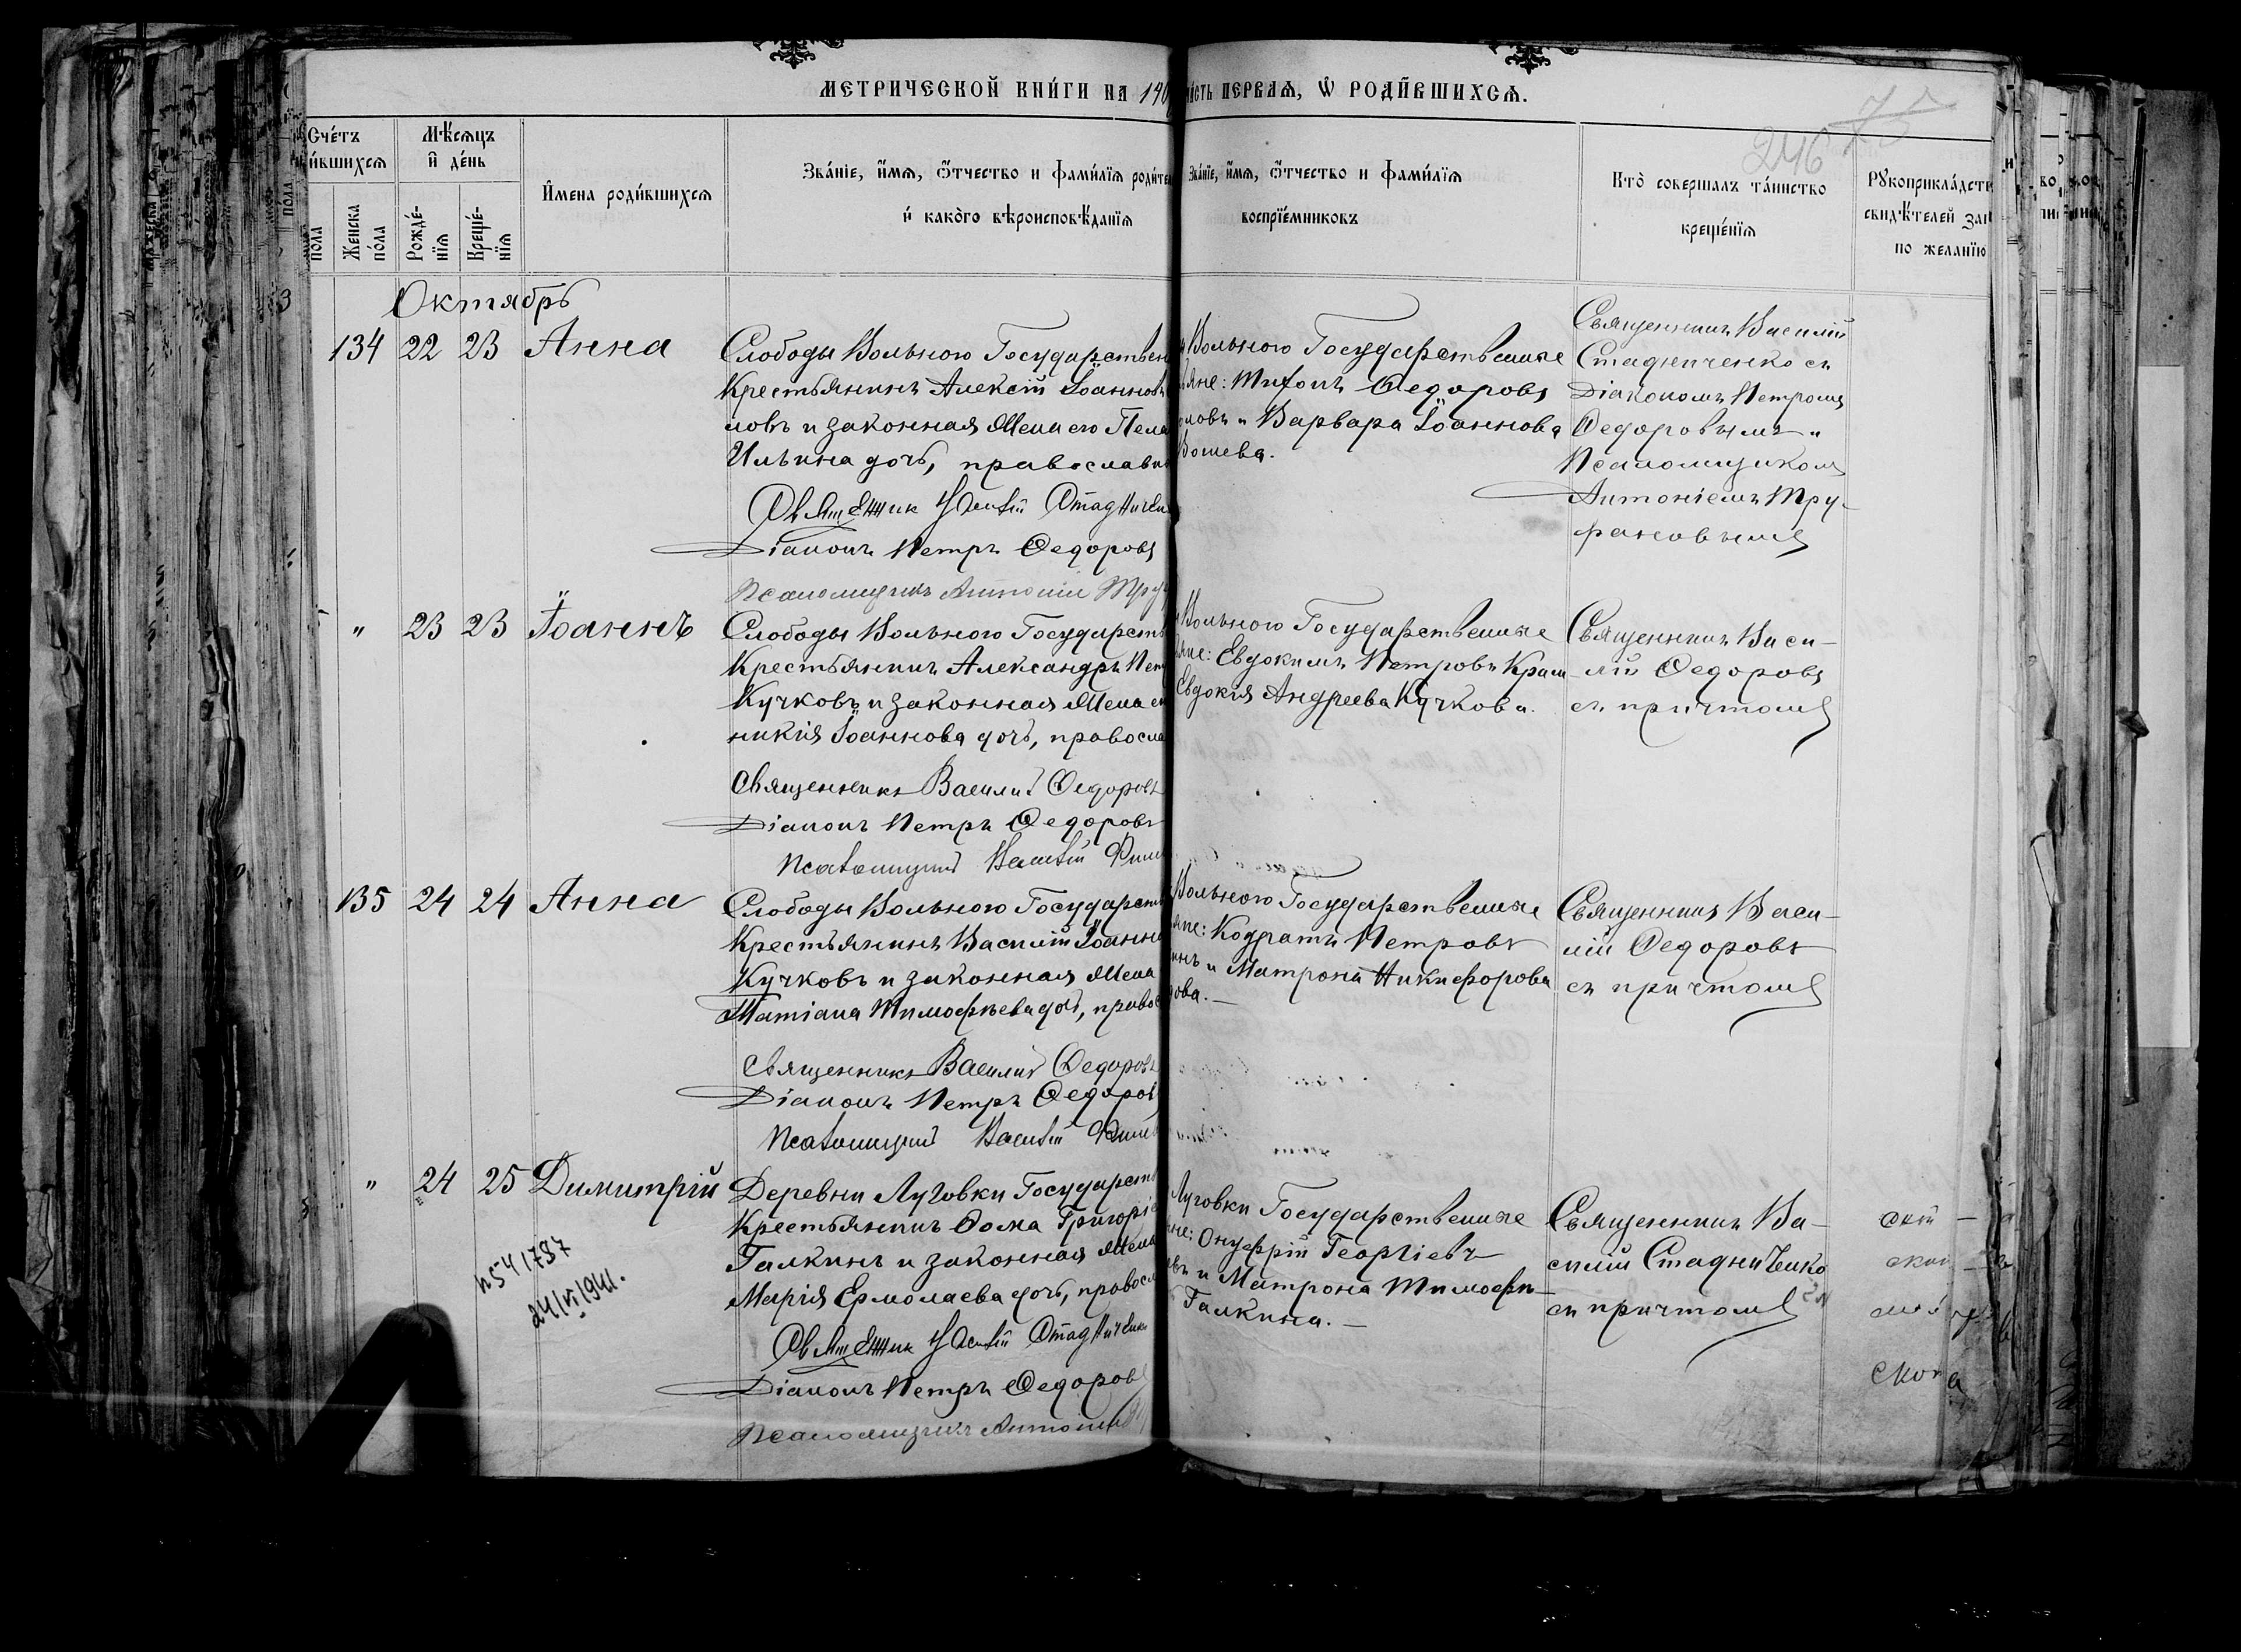 МЕТРИЧЕСКОЙ КНИ́ГИ НА 190
ча́сть ПЕРВАѦ, Ѡ РОДИ́ВШИХСѦ.
246
Сче́тъ
и́вшихсѧ
Мѣ́сѧцъ
и҆ де́нь
И҆мена роди́вшихсѧ
Зва́ніе, и҆́мѧ, ѻ҆́тчество и фами́лїѧ роди́те
и҆ како́го вѣроисповѣ́данїѧ
Зва́нїе, и҆́мѧ, ѻ҆́тчество и фами́лїѧ
воспрїе́мниковъ
Кто̀ совершалъ та́инство
креще́нїѧ
Рꙋкоприкла́дст
свидѣ́телей за
по желанїю
пола
Женска
по́ла
Рожде́-
нїѧ
Креще́-
нїѧ
Октябрь
134 22 23 Анна
Слободы Вольного Государствен
Крестьянинъ Алексій Іоаннов
ловъ и законная Жена его Пела
Ильина дочь, православн
Священник Василій Стадниченк
Діаконъ Петръ Ѳедоровъ
Псаломщикъ Антоній Труф
Вольного Государственные
яне: Тифонъ Ѳедоровъ
ловъ и Варвара Іоаннова
Вошева.
Священникъ Василій
Стадниченко съ
Діакономъ Петромъ
Ѳедоровымъ и
Псаломщикомъ
Антоніемъ Тру-
фановымъ
" 23 23 Іоаннъ
Слободы Вольного Государств
Крестьянинъ Александръ Пет
Кучковъ и законная Жена е
никія Іоаннова дочь, правосла
Священникъ Василий Ѳедоровъ
Діаконъ Петръ Ѳедоровъ
Псаломщикъ Василій Фили
Вольного Государственные
яне: Евдокимъ Петровъ Крам
Евдокія Андреева Кучкова.
Священникъ Васи-
лій Ѳедоровъ
съ причтомъ
135 24 24 Анна
Слободы Вольного Государств
Крестьянинъ Василій Іоанно
Кучковъ и законная Жена
Татіана Тимофѣева дочь, правос
Священникъ Василий Ѳедоровъ
Діаконъ Петръ Ѳедоровъ
Псаломщикъ Василій Фили
Вольного Государственные
яне: Кодратъ Петровъ
инъ и Матрона Никифорова
дова. —
Священникъ Васи-
лій Ѳедоровъ
съ причтомъ
" 24 25 Димитрій
Деревни Луговки Государств
Крестьянинъ Ѳома Григорі
Галкинъ и законная Жена
Марія Ермолаева дочь, правосл
Священник Василій Стадниченк
Діаконъ Петръ Ѳедоровъ
Псаломщикъ Антоній
Луговки Государственные
не: Онуфрій Георгіевъ
въ и Матрона Тимофѣ-
Галкина. —
Священникъ Ва-
силій Стадниченко
съ причтомъ
№541787
24/VI 1941.